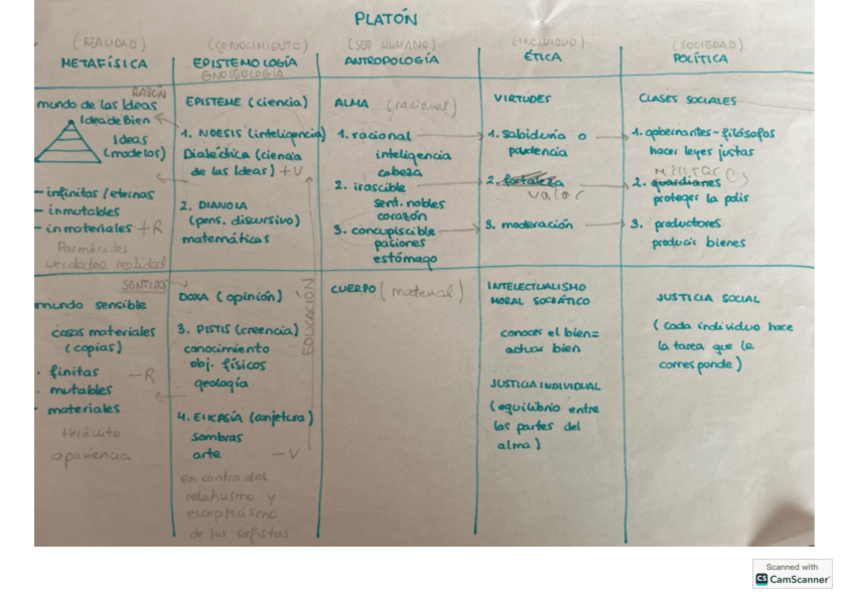 PLATÓN
(REALIDAD)
METAFÍSICA
RAZÓN
mundo de las Ideas
Idea de Bien
Ideas
(modelos)
- infinitas / eternas
- inmutables
- inmateriales +R
Parménides
verdadera realidad
SENTIDOS
mundo sensible
cosas materiales
(copias)
· finitas -R
· mutables
· materiales
Heráclito
apariencia
(CONOCIMIENTO)
EPISTEMOLOGÍA
GNOSEOLOGÍA
EPISTEME (ciencia)
1. NOESIS (inteligencia)
Dialéctica (ciencia
de las Ideas) +V
2. DIANOIA
(pens. discursivo)
matemáticas
EDUCACIÓN
DOXA (opinión)
3. PISTIS (creencia)
conocimiento
obj. físicos
geología
4. EIKASÍA (conjetura)
Sombras
arte -V
en contra del
relativismo y
escepticismo
de los sofistas
(SER HUMANO)
ANTROPOLOGÍA
ALMA (racional)
1. racional
inteligencia
cabeza
2. irascible
sent. nobles
corazón
3. concupiscible
pasiones
estómago
CUERPO (material)
(INDIVIDUO)
ÉTICA
VIRTUDES
1. Sabiduría o
prudencia
2. fortaleza
valor
3. moderación
INTELECTUALISMO
MORAL SOCRÁTICO
conocer el bien =
actuar bien
JUSTICIA INDIVIDUAL
(equilibrio entre
las partes del
alma)
(SOCIEDAD)
POLÍTICA
CLASES SOCIALES
1. gobernantes-filósofos
hacer leyes justas
2. guardianes
proteger la polis
3. productores
producir bienes
JUSTICIA SOCIAL
(Cada individuo hace
la tarea que le
corresponde)
Scanned with
CS CamScanner